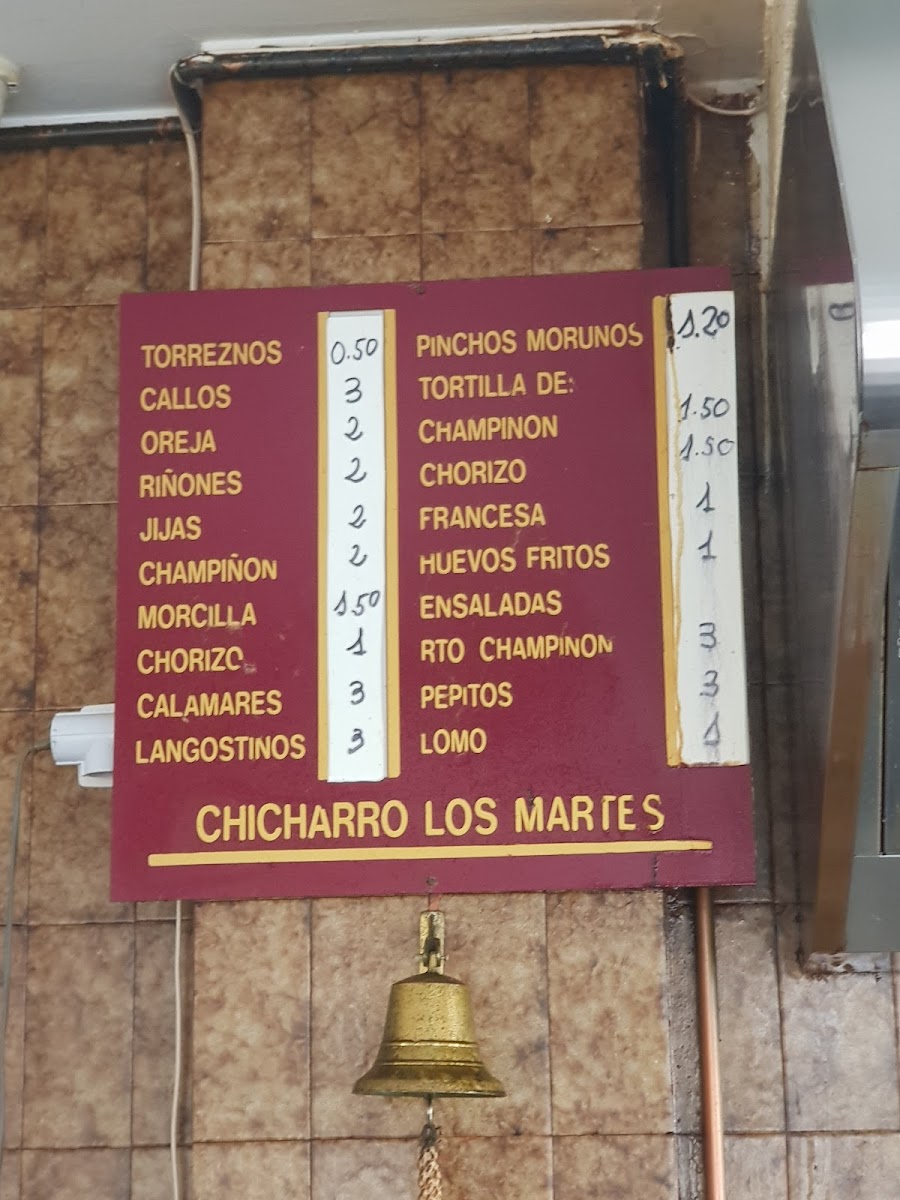 TORREZNOS 0.50
CALLOS 3
OREJA 2
RIÑONES 2
JIJAS 2
CHAMPIÑON 2
MORCILLA 1.50
CHORIZO 1
CALAMARES 3
LANGOSTINOS 3
PINCHOS MORUNOS 1.20
TORTILLA DE:
CHAMPINON 1.50
CHORIZO 1.50
FRANCESA 1
HUEVOS FRITOS 1
ENSALADAS
RTO CHAMPINON 3
PEPITOS 3
LOMO 1
CHICHARRO LOS MARTES